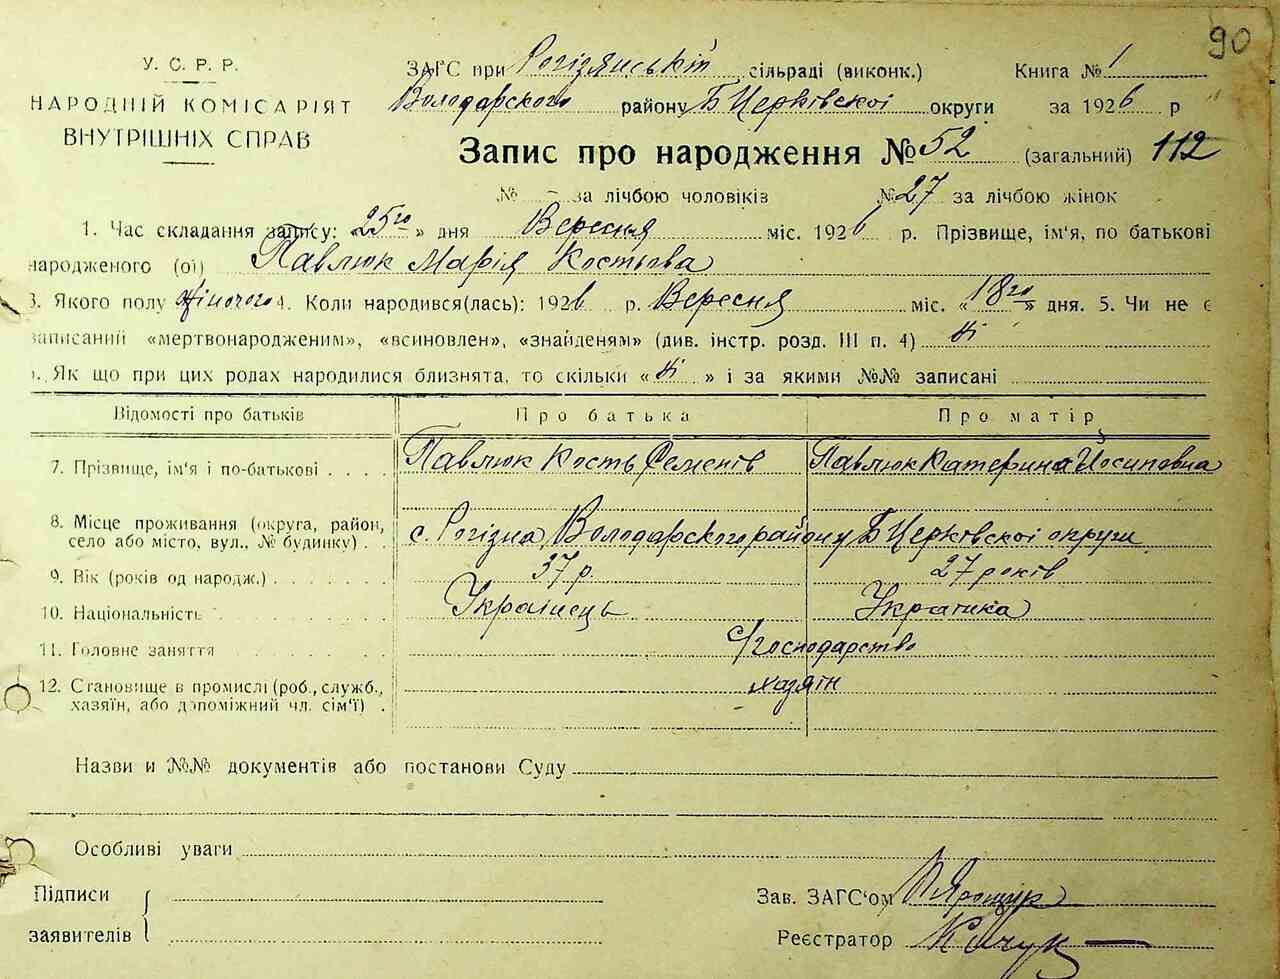 90
У. С. Р. Р.
НАРОДНІЙ КОМІСАРІЯТ
ВНУТРІШНІХ СПРАВ
ЗАГС при Рогізянській сільраді (виконк.) Книга № 1
Володарского району Б Церківскоі округи за 1926 р
Запис про народження № 52 (загальний) 112
№ - за лічбою чоловіків № 27 за лічбою жінок
1. Час складання запису: „25го" дня Вересня міс. 1926 р. Прізвище, ім'я, по батькові
народженого (ої) Павлюк Марія Костьова
3. Якого полу жіночого 4. Коли народився(лась): 1926 р. Вересня міс. «18го» дня. 5. Чи не є
записаний «мертвонародженим», «всиновлен», «знайденям» (див. інстр. розд. III п. 4) ні
Як що при цих родах народилися близнята, то скільки « ні » і за якими №№ записані
Відомості про батьків Про батька Про матір
7. Прізвище, ім'я і по-батькові Павлюк Кость Семенів Павлюк Катерина Йосиповна
8. Місце проживання (округа, район,
село або місто, вул., № будинку) с. Рогізна Володарского району Б Церківскоі округи
9. Вік (років од народж.) 37 р. 27 років
10. Національність Українець Українка
11. Головне заняття с/господарство
12. Становище в промислі (роб., служб., хазяін
хазяїн, або допоміжний чл. сім'ї)
Назви и №№ документів або постанови Суду
Особливі уваги
Підписи
заявителів
Зав. ЗАГС'ом
Реєстратор